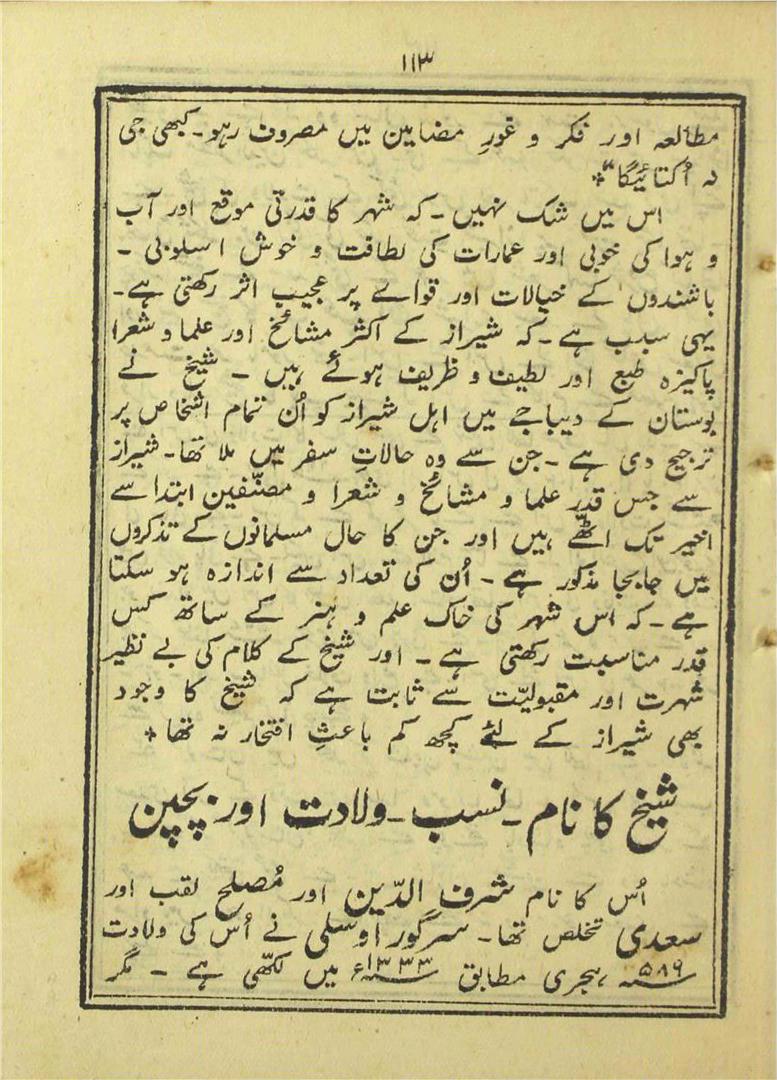 ۱۱۳
مطالعہ اور فکر و غورِ مضامین میں مصروف رہو۔ کبھی جی
نہ اُکتائیگا"٭
اس میں شک نہیں۔ کہ شہر کا قدرتی موقع اور آب
و ہوا کی خوبی اور عمارات کی لطافت و خوش اسلوبی ۔
باشندوں کے خیالات اور قواے پر عجیب اثر رکھتی ہے۔
یہی سبب ہے۔ کہ شیراز کے اکثر مشائخ اور علما و شعرا
پاکیزہ طبع اور لطیف و ظریف ہوئے ہیں ۔ شیخ نے
بوستان کے دیباجے میں اہل شیراز کو اُن تمام اشخاص پر
ترجیح دی ہے ۔ جن سے وہ حالاتِ سفر میں ملا تھا۔ شیراز
سے جس قدر علما و مشائخ و شعرا و مصنّفین ابتدا سے
اخیر تک اٹھّے ہیں اور جن کا حال مسلمانوں کے تذکروں
میں جابجا مذکور ہے ۔ اُن کی تعداد سے اندازہ ہو سکتا
ہے ۔ کہ اس شہر کی خاک علم و ہنر کے ساتھ کس
قدر مناسبت رکھتی ہے ۔ اور شیخ کے کلام کی بے نظیر
شہرت اور مقبولیّت سے ثابت ہے کہ شیخ کا وجود
بھی شیراز کے لئے کچھ کم باعثِ افتخار نہ تھا٭
شیخ کا نام ۔ نسب ۔ ولادت اور بچپن
اُس کا نام شرف الدّین اور مُصلح لقب اور
سعدی تخلص تھا۔ سرگور اوسلی نے اُس کی ولادت
۵۸۹؁ ہجری مطابق ۱۳۳۳؁ء میں لکھّی ہے ۔ مگر